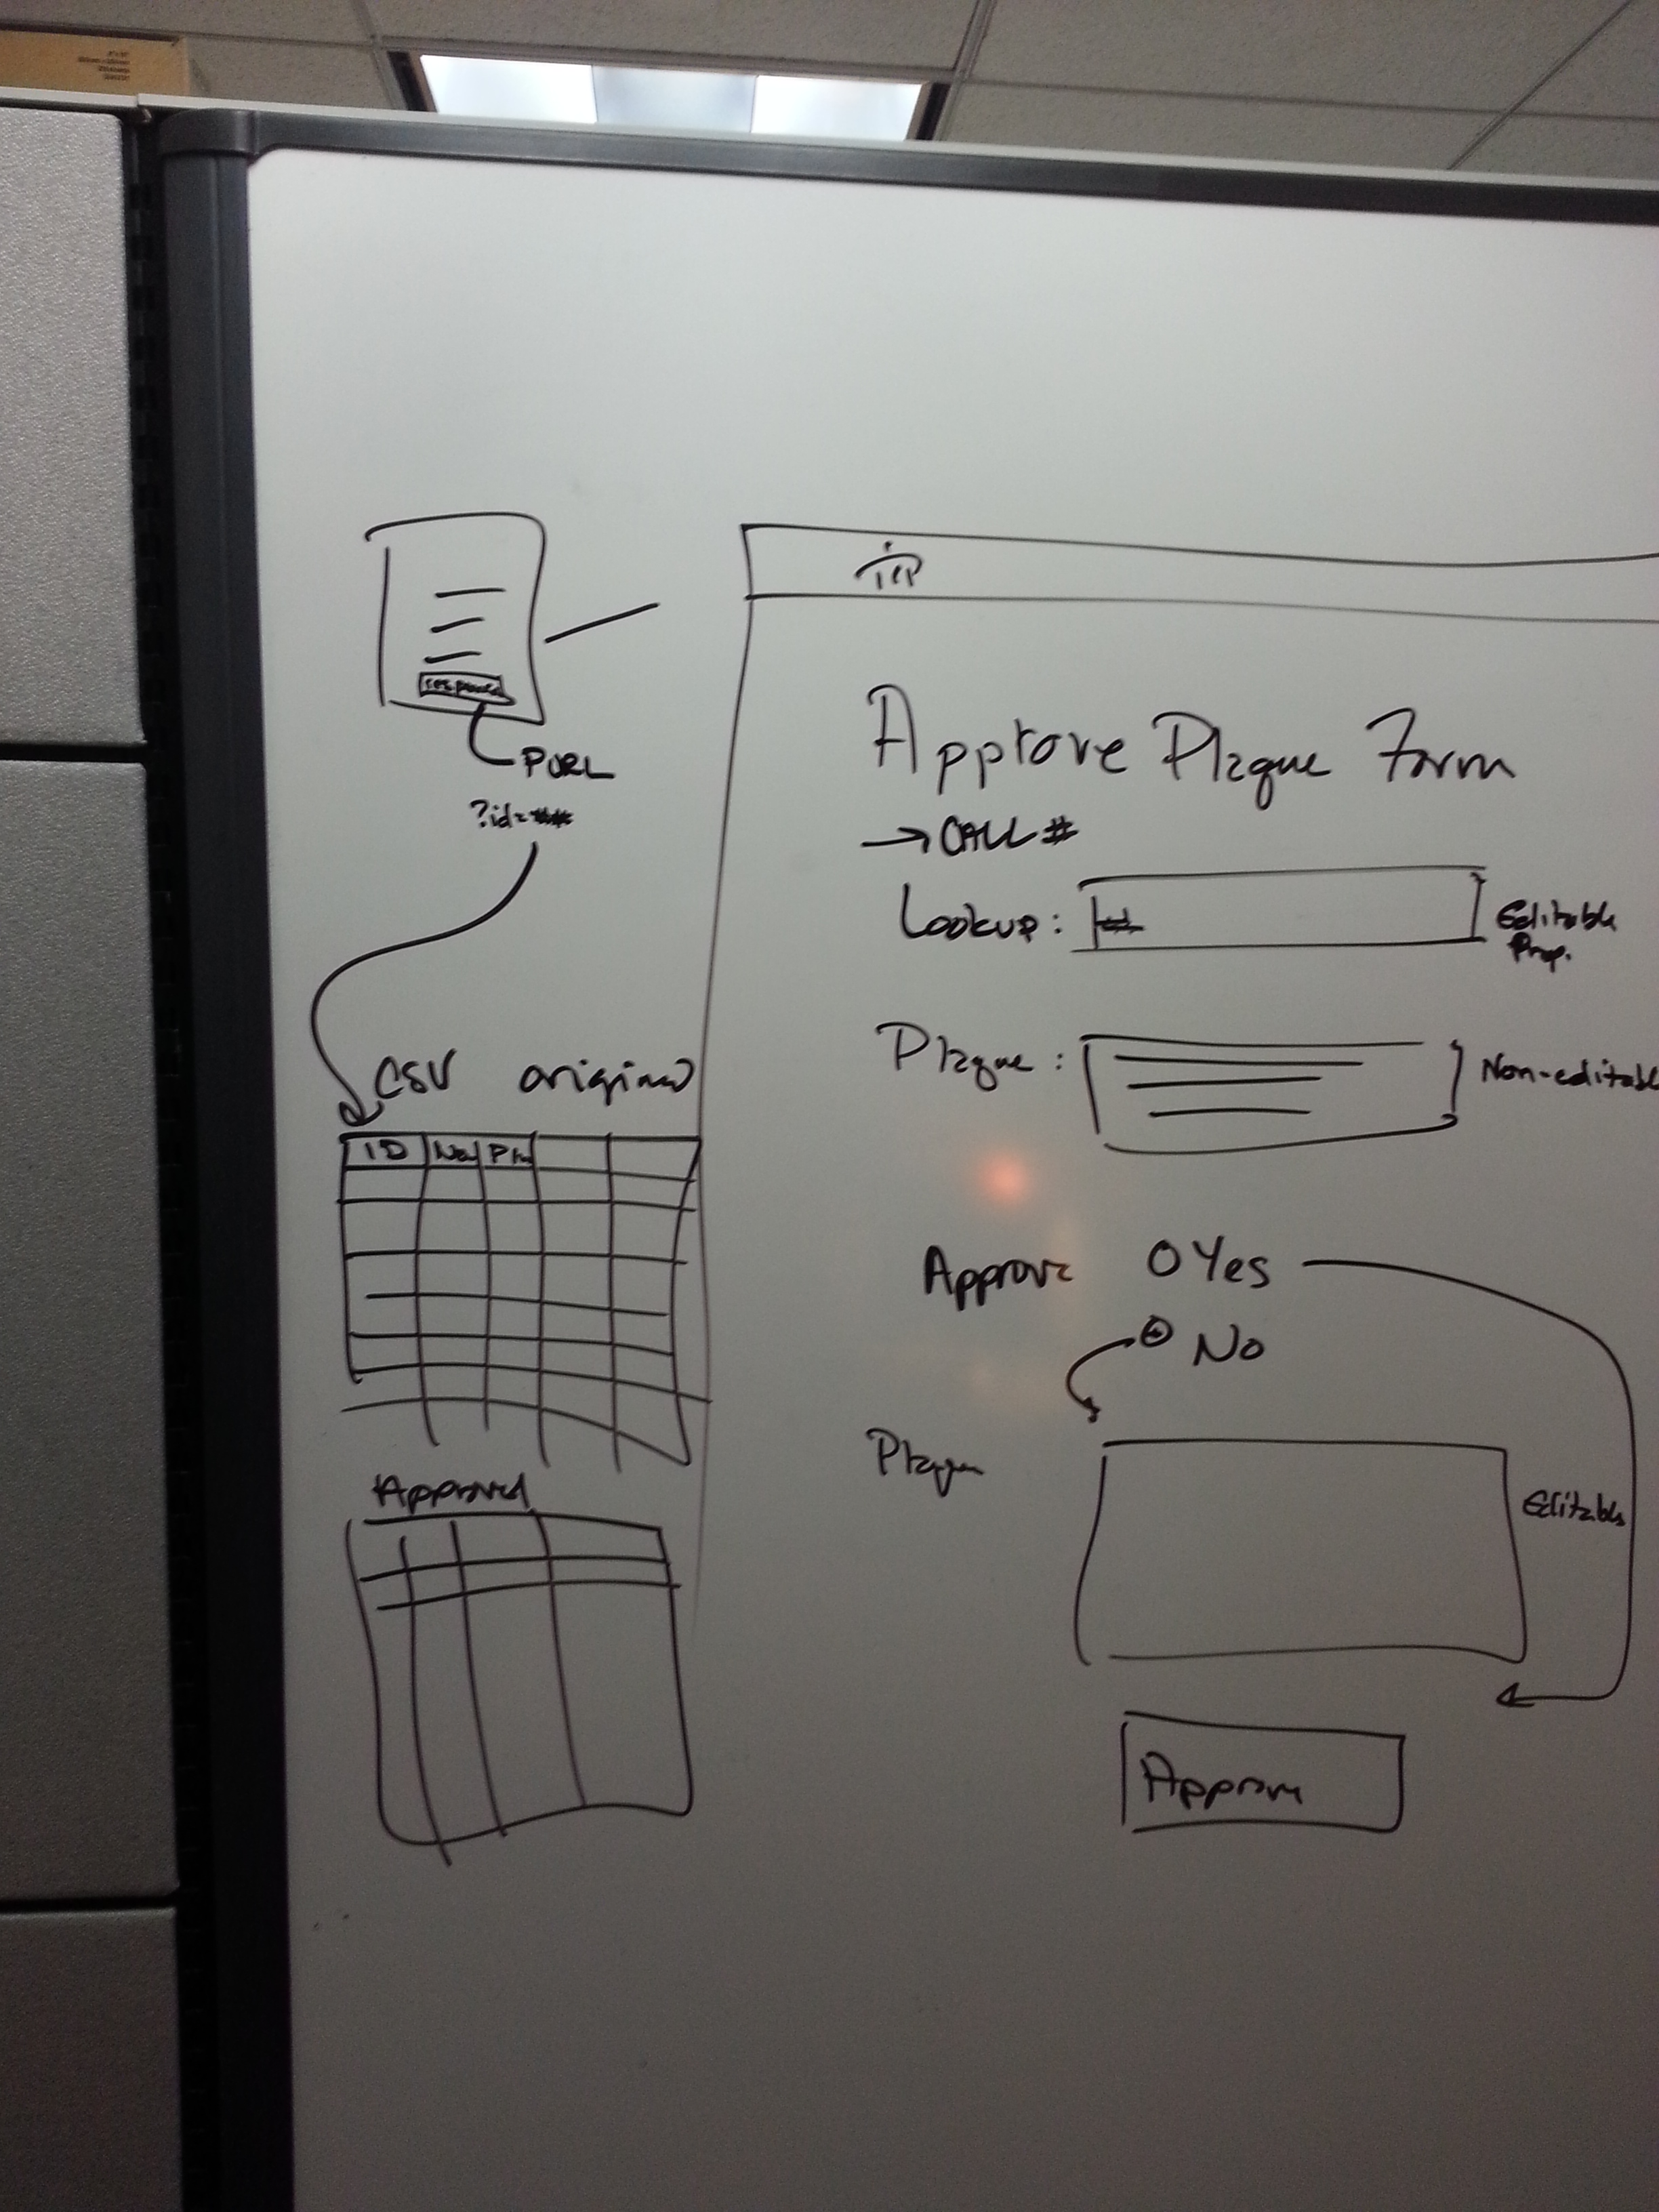 PURL
?id=##
CSV original
ID Na Pla
Approved
TCP
Approve Plaque Form
→ CALL #
Lookup: #
Editable
Prop.
Plaque:
Non-editable
Approve O Yes
No
Plaque
Editable
Approve